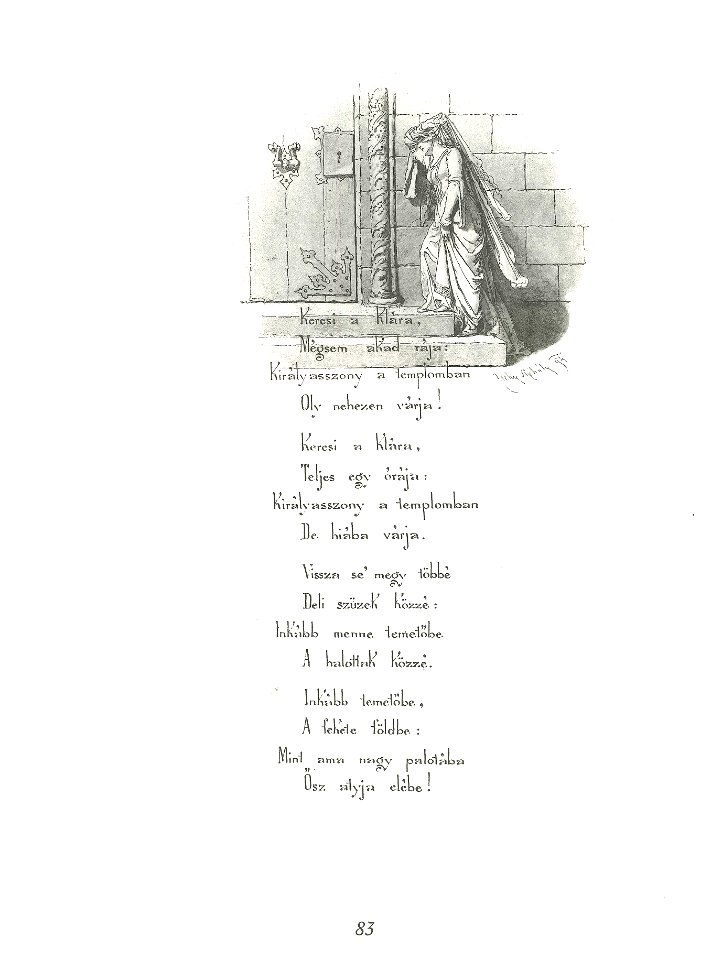 Keresi a Klára,
Mégsem akad rája:
Királyasszony a templomban
Oly nehezen várja!
Keresi a Klára,
Teljes egy órája:
Királyasszony a templomban
De hiába várja.
Vissza se' megy többé
Deli szüzek közzé:
Inkább menne temetőbe
A halottak közzé.
Inkább temetőbe,
A fekete földbe:
Mint ama nagy palotába
Ősz atyja elébe!
83